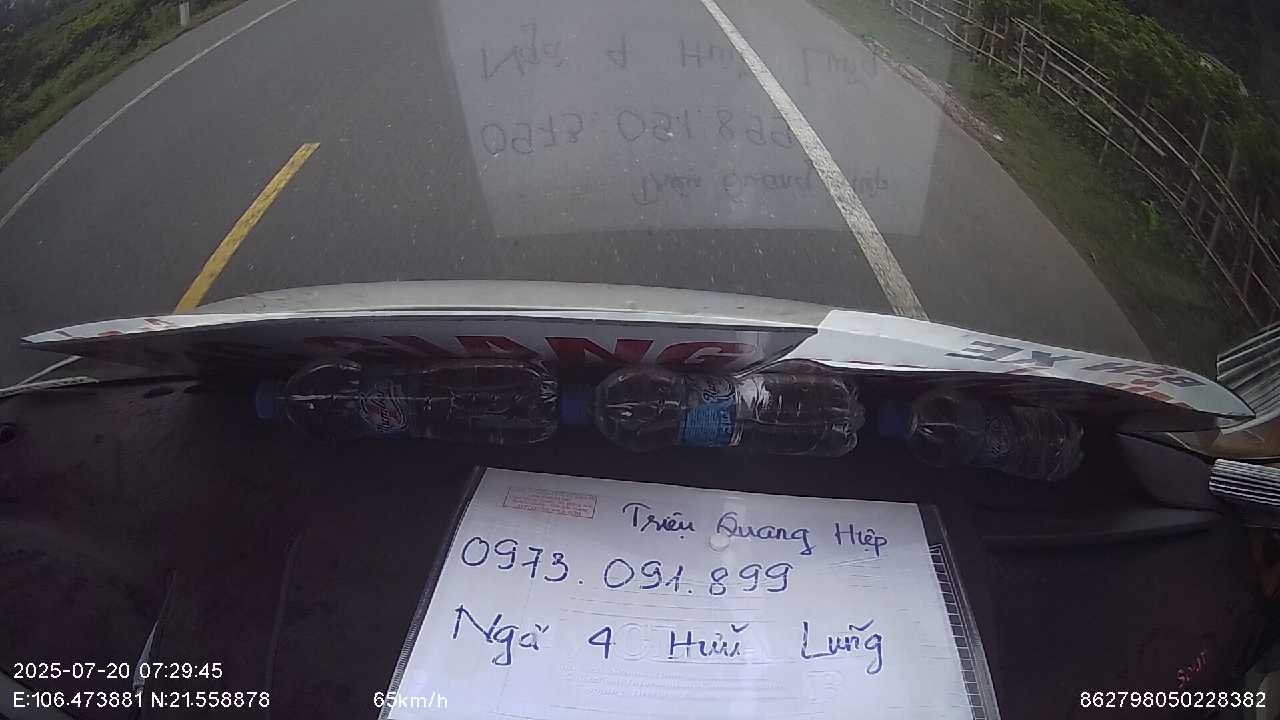 GIANG
BẾN XE
Triệu Quang Hiệp
0973.091.899
Ngã 4 Hữu Lũng
2025-07-20 07:29:45
E:106.473881 N:21.558878
65km/h
862798050228382